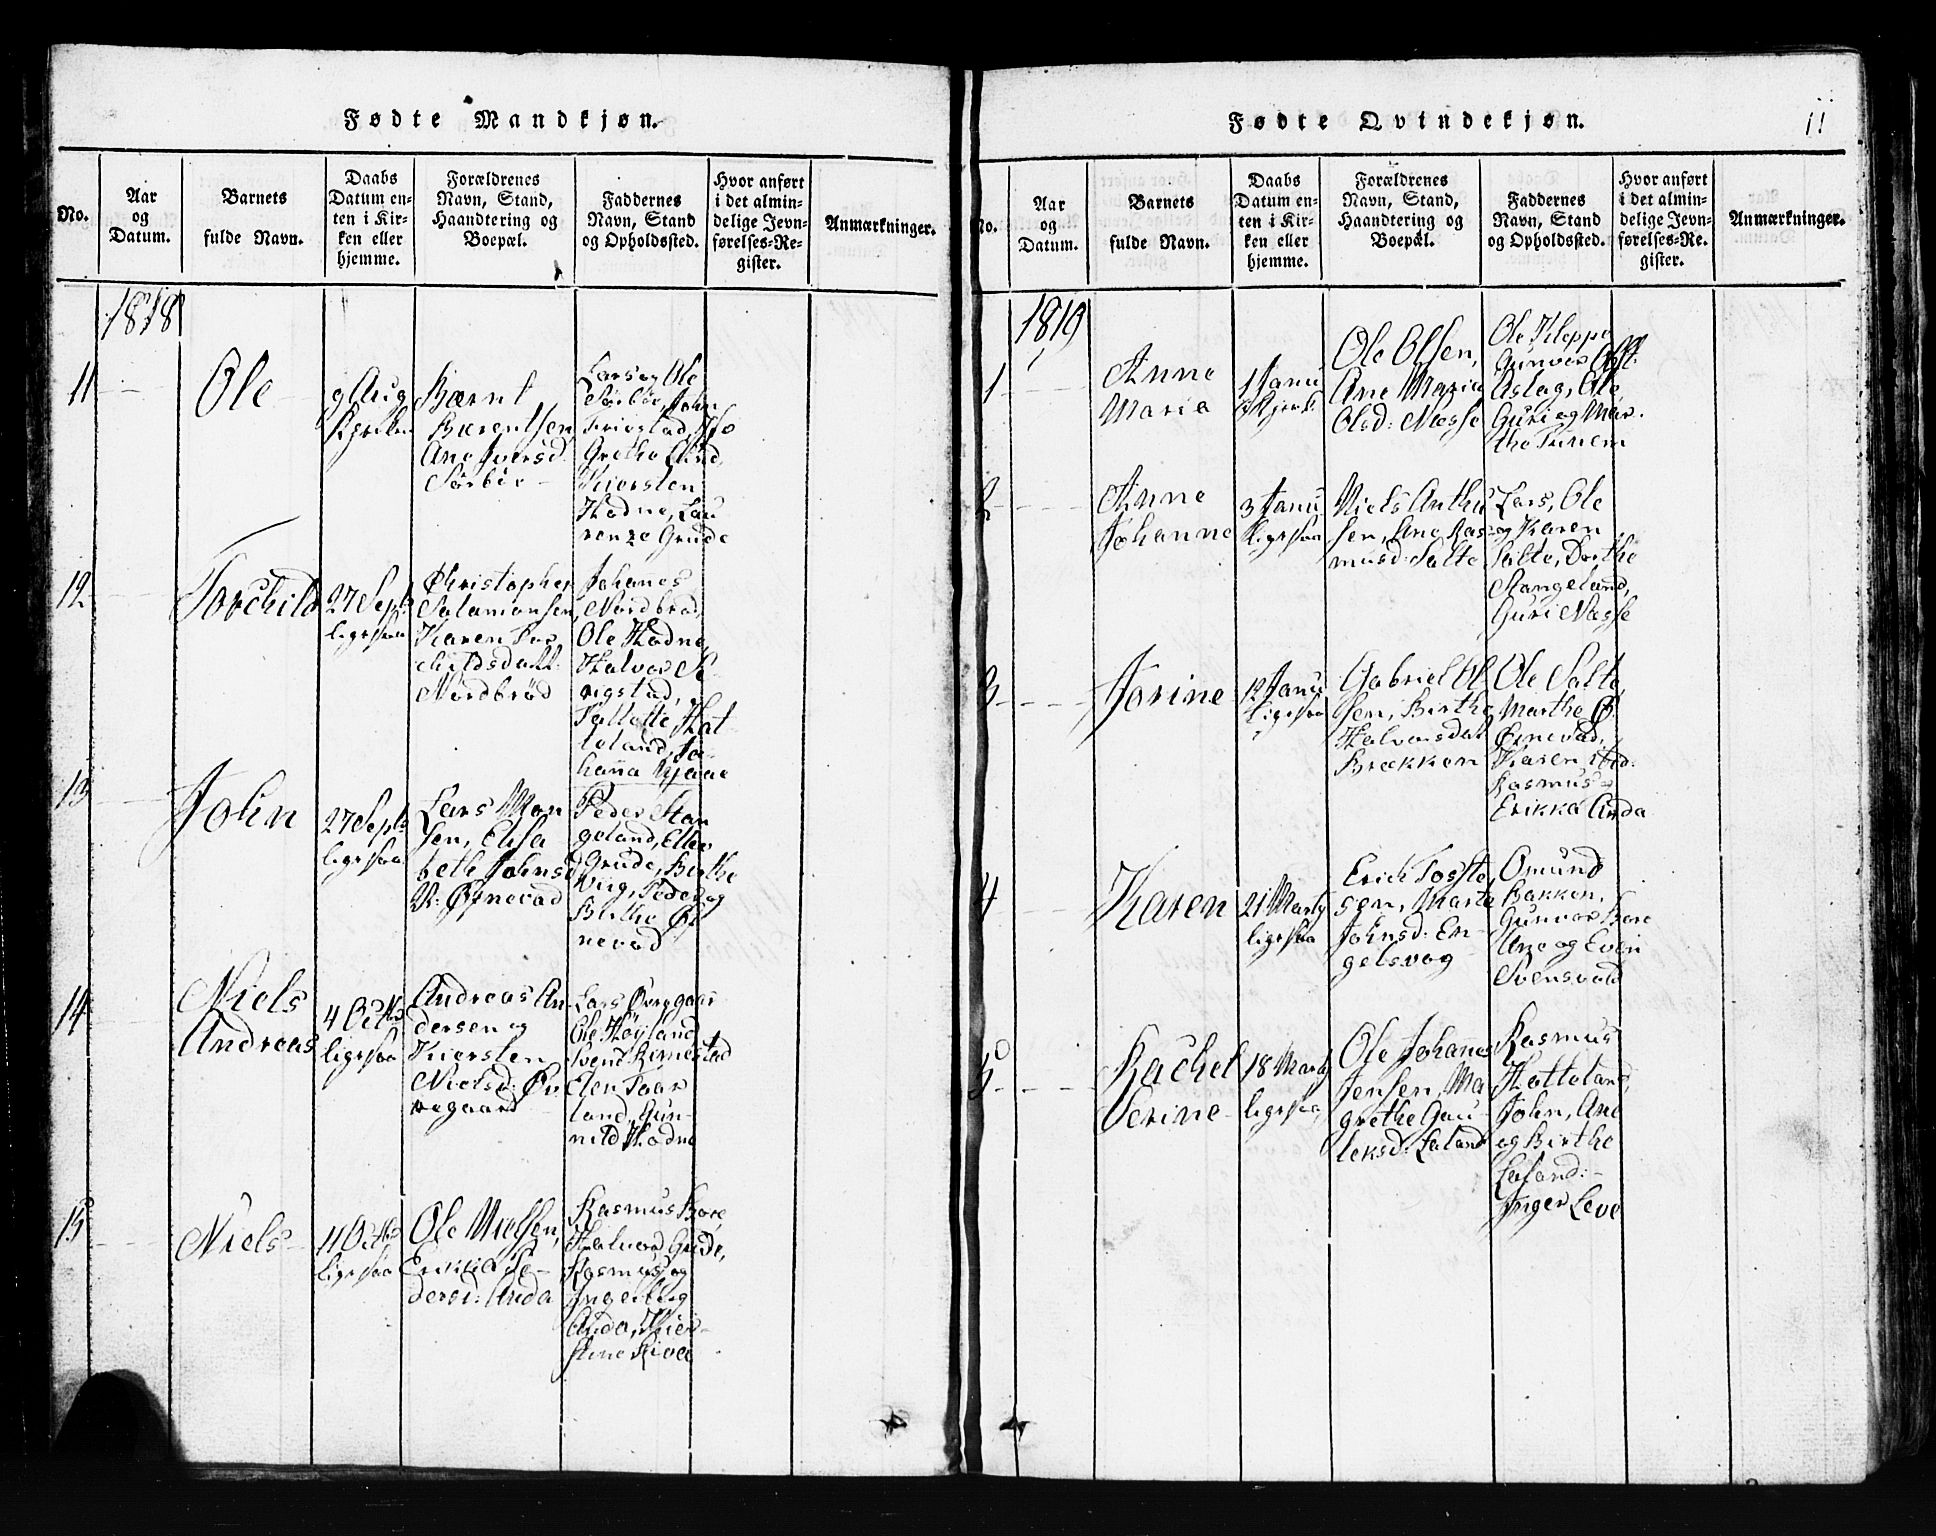 Fødte Mandkjøn.
No.
Aar
og
Datum.
Barnets
fulde Navn.
Daabs
Datum en-
ten i Kir-
ken eller
hjemme.
Forældrenes
Navn, Stand,
Haandtering og
Boepæl.
Faddernes
Navn, Stand
og Opholdssted.
Hvor anført
i det almin-
delige Jevn-
førelses-Re-
gister.
Anmærkninger.
1818
11
Ole
9 Aug
Kjrken
Bærnt
Bærentsen
Ane Iversd.
Sørbøe
Lars og Ole
Sørbøe, John
Friestad,
Grethe Lind,
Kiersten
Hodne, Lau
renze Grude
12
Torchild
27 Sept
ligesaa
Christopher
Salamonsen,
Karen Tor
childsdatt.
Nordbrød
Johanes
Nordbrød,
Ole Hodne,
Halvor Se
rigstad,
Hat
teland, Jo-
hanna Kjaae
13
John
27 Sept
ligesaa
Lars Mon
sen, Elisa
beth Johnsd
N: Øgnevad
Peder Stan
geland, Ellen
Grude, Birthe
Virg, Peder og
Birthe Øg
nevad
14
Niels
Andreas
4 Octbr
ligesaa
Andreas An-
dersen og
Kiersten
Nielsd: Øv
regaard
Lars Øvregaar
Ole Høyland
Svend Rimestad
Elen Taar
land, Gun-
nild Hodne
15
Niels
11 Octbr
ligesaa
Ole Nielsen,
Erikka Pe-
dersd: Anda
Rasmus Bore,
Halvord Grude,
Rasmus og
Ingeborg
Anda, Kier-
stine
Fødte Qvindekjøn.
11
No.
Aar
og
Datum.
Barnets
fulde Navn.
Daabs
Datum en-
ten i Kir-
ken eller
hjemme.
Forældrenes
Navn, Stand,
Haandtering og
Boepæl.
Faddernes
Navn, Stand
og Opholdssted.
Hvor anført
i det almin-
delige Jevn-
førelses-Re-
gister.
Anmærkninger.
1819
1
Anne
Maria
1 Janu
i Kjerk.
Ole Olsen,
Ane Maria
Olsd: Næsse
Ole Kleppe
Gunvor
Aslag, Ole,
Guri og Mar-
the Tunem
2
Anne
Johanne
3 Janu
ligesaa
Niels Anthu
sen, Ane Ras-
musd: Salte
Lars, Ole
og Karen
Salte, Dorthe
Stangeland,
Guri Næsse
3
Jorine
12 Janu
ligesaa
Gabriel Ol
sen, Birthe
Halvorsdat
Brækken
Ole Salte,
Marthe
Øgnevad,
Karen
Rasmus
Erikka Anda
4
Karen
21 Marty
ligesaa
Erich Toste
sen, Marte
Johnsd: En-
gelsvog
Omund
Bakken,
Gunvor Bore
Ane og Even
Svensvold
5
Rachel
Serine
18 Marty
ligesaa
Ole Johanes
Jensen, Ma
grethe Gau-
teksd: Laland
Rasmus
Hatteland,
John, Ane
og Birthe
Laland:
Inger Leve